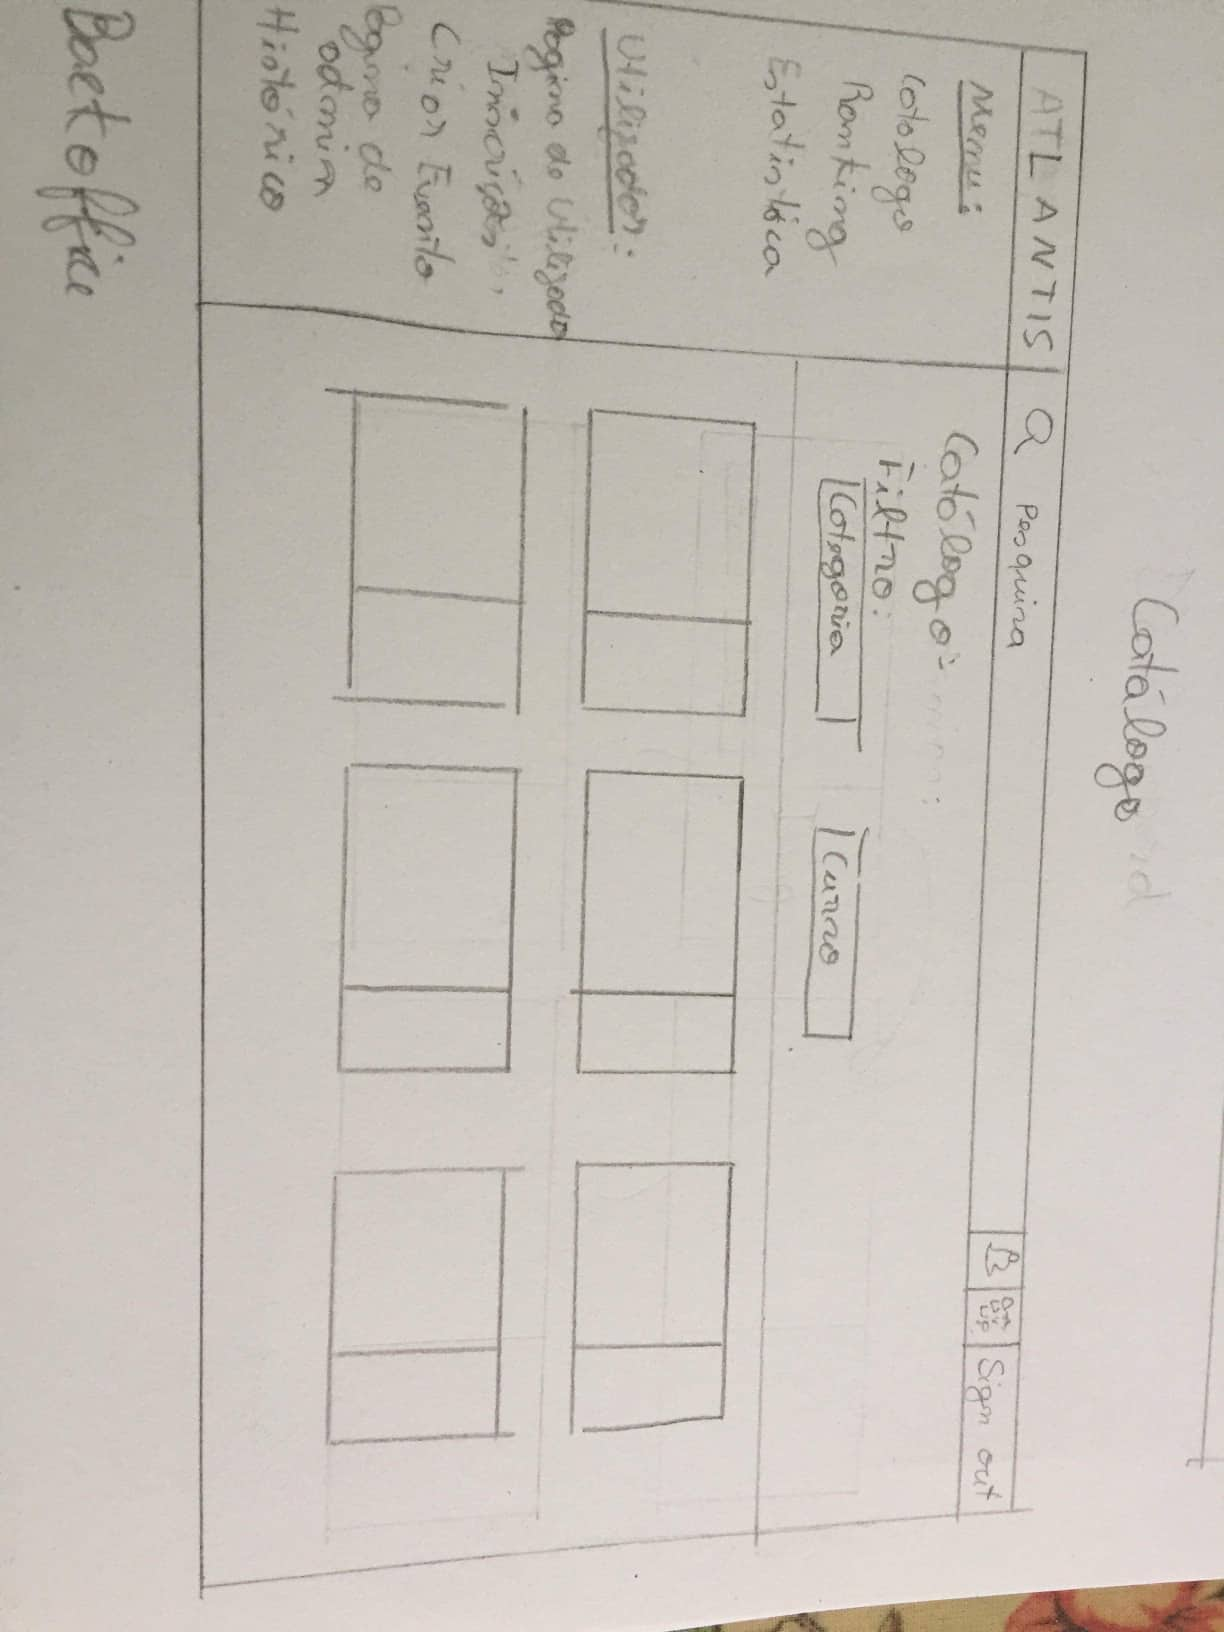 Catálogo
ATLANTIS
Pesquisa
Sign out
Menu:
Catalogo
Ranking
Estatistica
Utilizador:
Pagina de Utilizador
Inscrições
Criar Evento
Pagina de
admin
Histórico
Catálogo:
Filtro:
Categoria
Curso
Backoffice